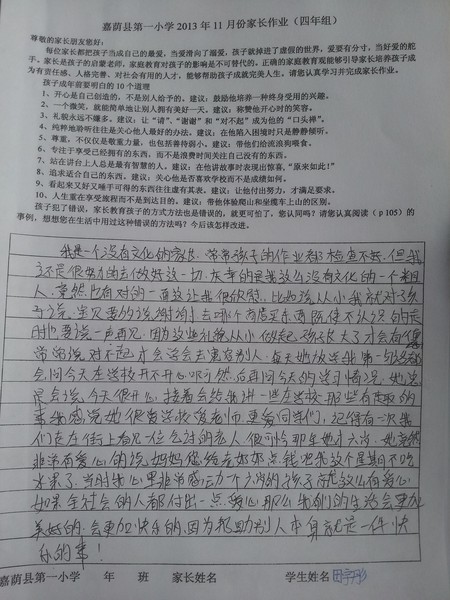 嘉荫县第一小学 2013 年 11 月份家长作业（四年组）
尊敬的家长朋友您好：
每位家长都把孩子当成自己的最爱，当爱滑向了溺爱，孩子就掉进了虚假的世界，爱要有分寸，当好爱的舵
手。家长是孩子的启蒙老师，家庭教育对孩子的影响是不可替代的。正确的家庭教育观能够影响引导家长培养孩子成
为有责任感、人格完善、对社会有用的人才，能够帮助孩子成就完美人生。请您认真学习并完成家长作业。
孩子成年前要明白的 10 个道理
1、开心是自己创造的，不是别人给予的。建议：鼓励他培养一种终身受用的兴趣。
2、一个微笑，就能简单地让别人拥有美好一天。建议：称赞他开心时的笑容。
3、礼貌永远不嫌多。建议：让“请”、“谢谢”和“对不起”成为他的“口头禅”。
4、纯粹地聆听往往是关心他人最好的办法。建议：在他陷入困境时只是静静倾听。
5、尊重，不仅仅是敬重力量，也包括善待弱小。建议：带他们给流浪狗喂食。
6、专注于享受已经拥有的东西，而不是浪费时间关注自己没有的东西。
7、站在讲台上人总是最有智慧的人。建议：在他讲故事时表现出惊喜，“原来如此！”
8、追求适合自己的东西。建议：关心他是否喜欢学校而不是成绩如何。
9、看起来又好又唾手可得的东西往往虚有其表。建议：让他付出努力，才满足要求。
10、人生重在享受旅程而不是到达目的。建议：带他体验爬山和坐缆车上山的区别。
孩子犯了错误，家长教育孩子的方式方法也是错误的，就更可怕了，您认同吗？请您认真阅读（p105）的
事例，想想您在生活中用过这种错误的方法吗？今后该怎样改进。
我是一个没有文化的家长，常常孩子的作业都检查不好，但我
还是很努力的去做好这一切，庆幸的是我这么没有文化的一个粗
人，竟然也有对的一面这让我很欣慰，比如说从小我就对孩
子说，
时也要说一声再见，因为这些礼貌从小做起孩子长大了才会有
常常说对不起才会学会去宽容别人，每天她放学我第一句话都
会问今天在学校开不开心呀，然后再问今天的学习情况，她总
是会说，今天很开心，接着会给我讲一些在学校那些有趣的
事，我感觉她很爱学校爱老师更爱同学们，记得有一次我
们走在街上看见一位乞讨的老人很可怜那年她才六岁，她竟然
非常有爱心的说妈妈您给老奶奶点钱吧我这个星期不吃
水果了，当时我心里非常感动一个六岁的孩子都这么有爱心
如果全社会的人都付出一点爱心那么我们的生活会更加
美好的，会更加快乐的，因为帮助别人本身就是一件快
乐的事！
嘉荫县第一小学 年 班 家长姓名 学生姓名